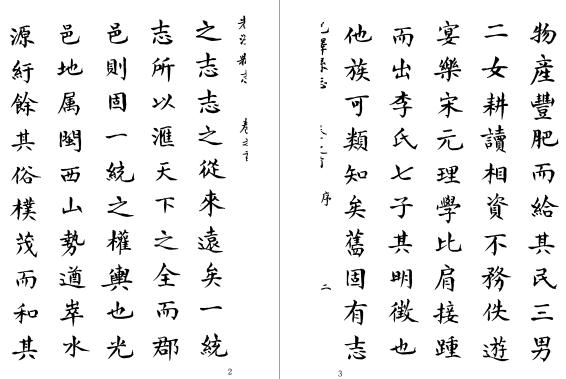 光澤縣志 卷之首
之志志之從來遠矣一統
志所以滙天下之全而郡
邑則固一統之權輿也光
邑地属閩西山勢遒崒水
源紆餘其俗樸茂而和其
2
物產豐肥而給其民三男
二女耕讀相資不務佚遊
宴樂宋元理學比肩接踵
而出李氏七子其明徵也
他族可類知矣舊固有志
光澤縣志 卷之首 序 二
3